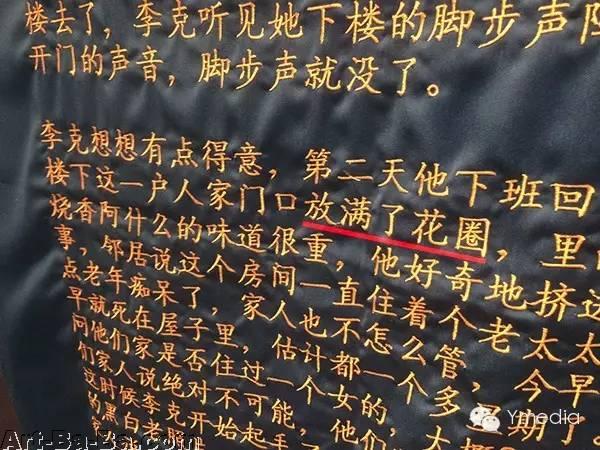 楼去了，李克听见她下楼的脚步声
开门的声音，脚步声就没了。
李克想想有点得意，第二天他下班回
楼下这一户人家门口放满了花圈，里
烧香阿什么的味道很重，他好奇地挤进
事，邻居说这个房间一直住着个老太太
点老年痴呆了，家人也不怎么管，今早
早就死在屋子里，估计都么个多星期了。
问他们家是否住过一个女的，大
们家人说绝对不可能，他们
这时候李克开始起手
的黑白老
Ymedia
Art-Ba-Ba.com